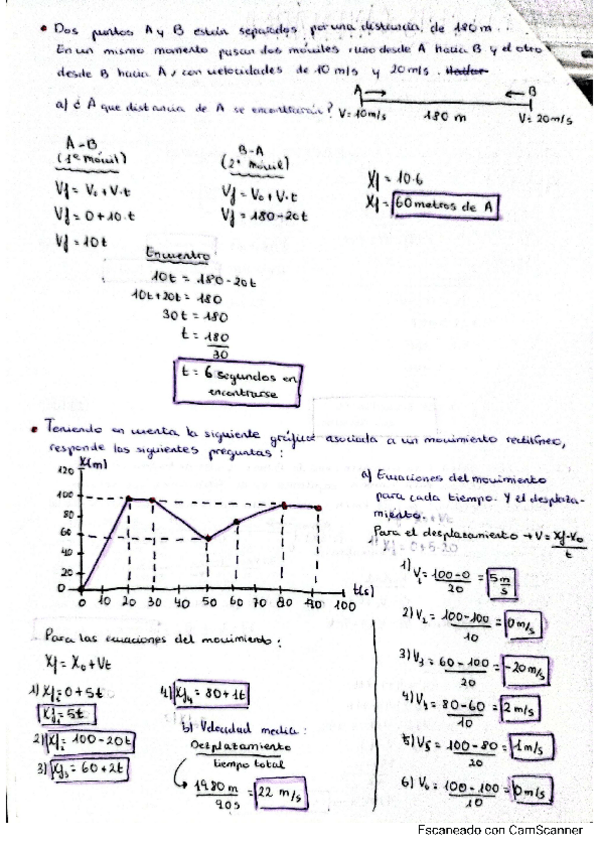 • Dos puntos A y B están separados por una distancia de 180 m.
En un mismo momento pasan dos móviles: uno desde A hacia B y el otro
desde B hacia A, con velocidades de 10 m/s y 20 m/s.
a) ¿A que distancia de A se encontrarán?
A B
V=10m/s 180 m V=20m/s
A-B
(1er móvil)
Vf = Vo + V·t
Vf = 0 + 10·t
Vf = 10t
B-A
(2º móvil)
Vf = Vo + V·t
Vf = 180 - 20t
Xf = 10·6
Xf = 60 metros de A
Encuentro
10t = 180 - 20t
10t + 20t = 180
30t = 180
t = 180
30
t = 6 segundos en
encontrarse
• Teniendo en cuenta la siguiente gráfica asociada a un movimiento rectilíneo,
responde las siguientes preguntas:
X(m)
120
100
80
60
40
20
0
0 10 20 30 40 50 60 70 80 90 100
t(s)
a) Ecuaciones del movimiento
para cada tiempo. Y el desplaza-
miento.
Para el desplazamiento → V = Xf-Xo
t
1) V1 = 100-0 = 5 m
20 s
2) V2 = 100-100 = 0 m/s
10
3) V3 = 60-100 = -20 m/s
20
4) V4 = 80-60 = 2 m/s
10
5) V5 = 100-80 = 1 m/s
20
6) V6 = 100-100 = 0 m/s
10
Para las ecuaciones del movimiento:
Xf = Xo + Vt
1) Xf = 0 + 5t
Xf1 = 5t
2) Xf2 = 100 - 20t
3) Xf3 = 60 + 2t
4) Xf4 = 80 + 1t
b) Velocidad media:
Desplazamiento
tiempo total
1980 m = 22 m/s
90s
Escaneado con CamScanner